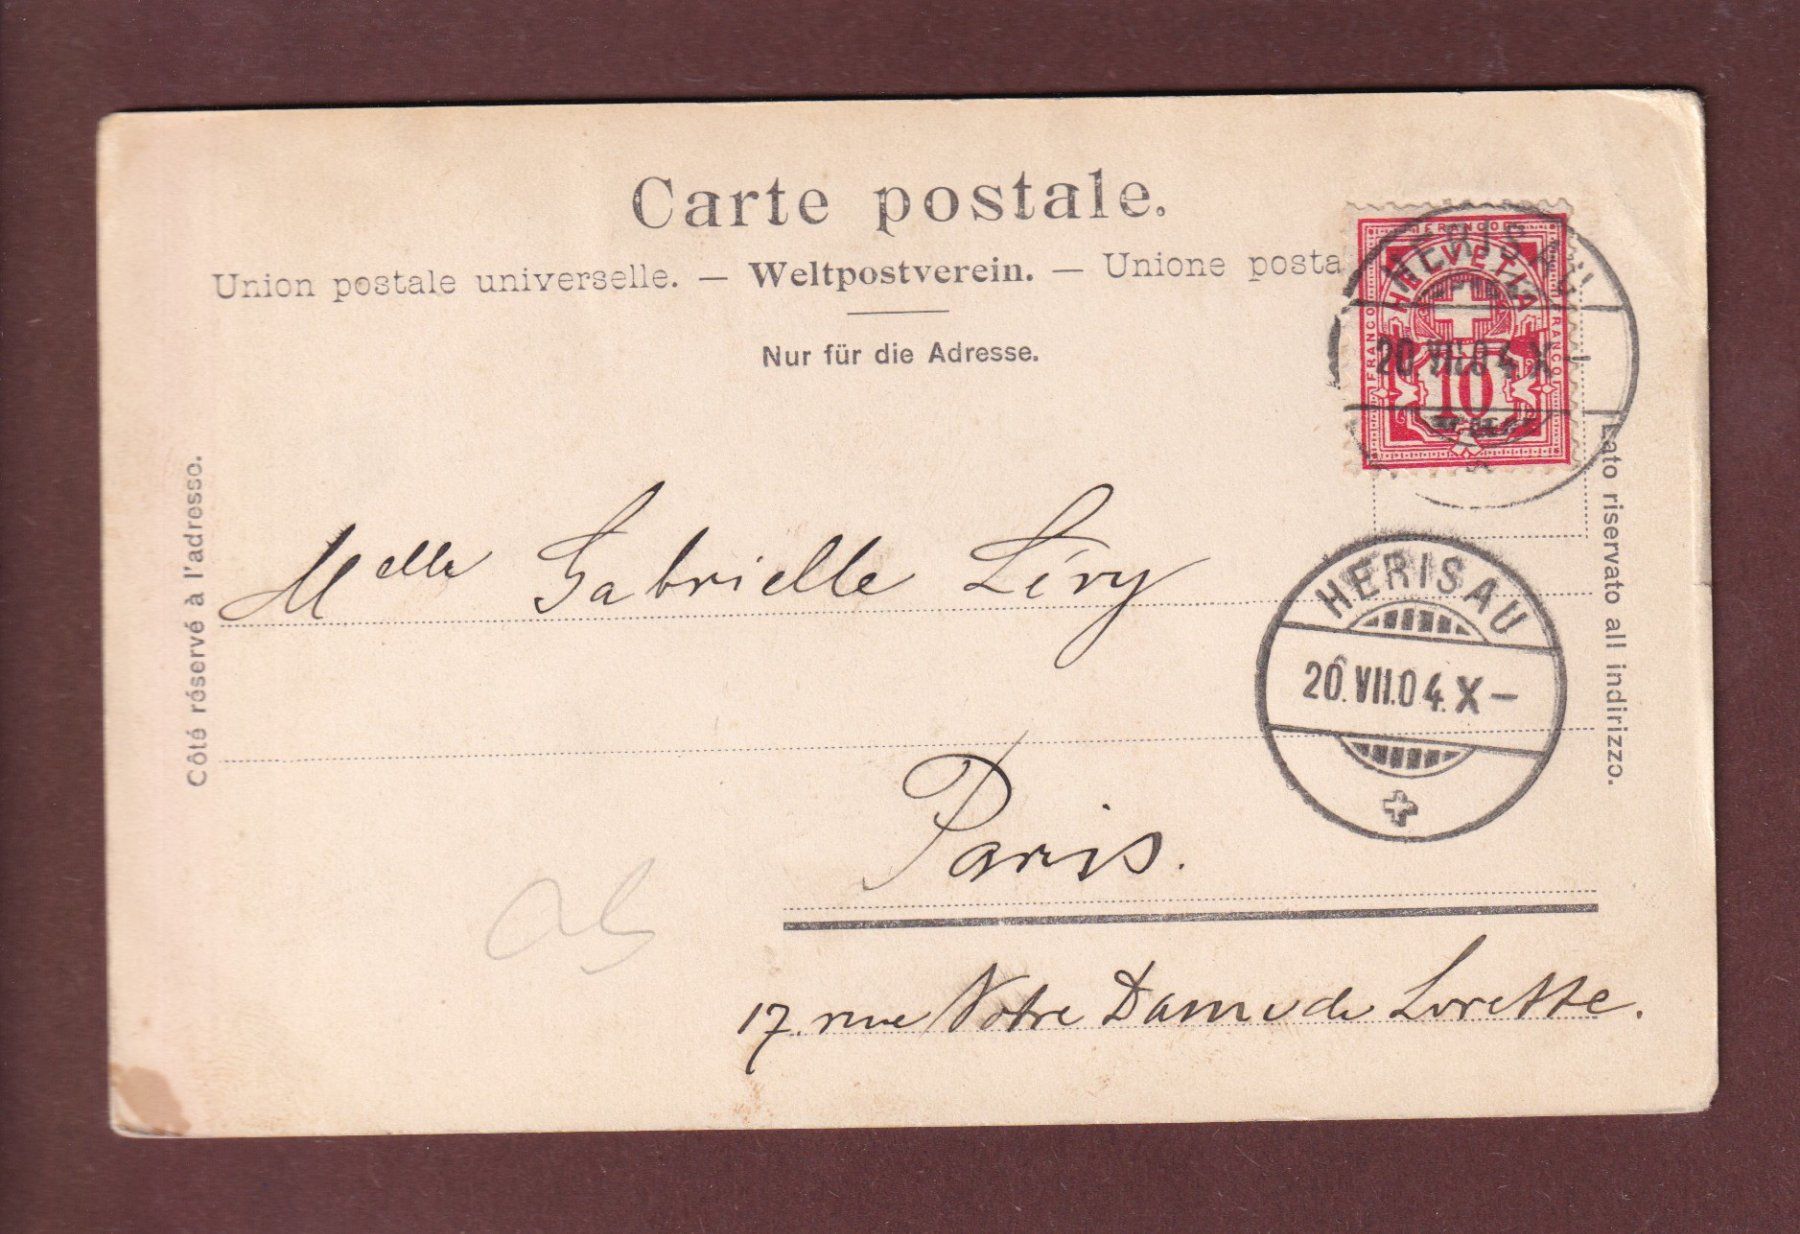 Carte postale.
Union postale universelle. — Weltpostverein. — Unione posta
Nur für die Adresse.
Côté réservé à l'adresse.
Lato riservato all indirizzo.
FRANCO
HELVETIA
FRANCO
FRANCO
10
HERISAU
20.VII.04.X–
HERISAU
20.VII.04.X–
Melle Gabrielle Lévy
Paris.
17. rue Notre Dame de Lorette.